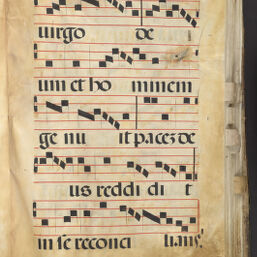 uirgo de
um et ho minem
ge nu it pacez de
us reddi di t
in se reconci lians